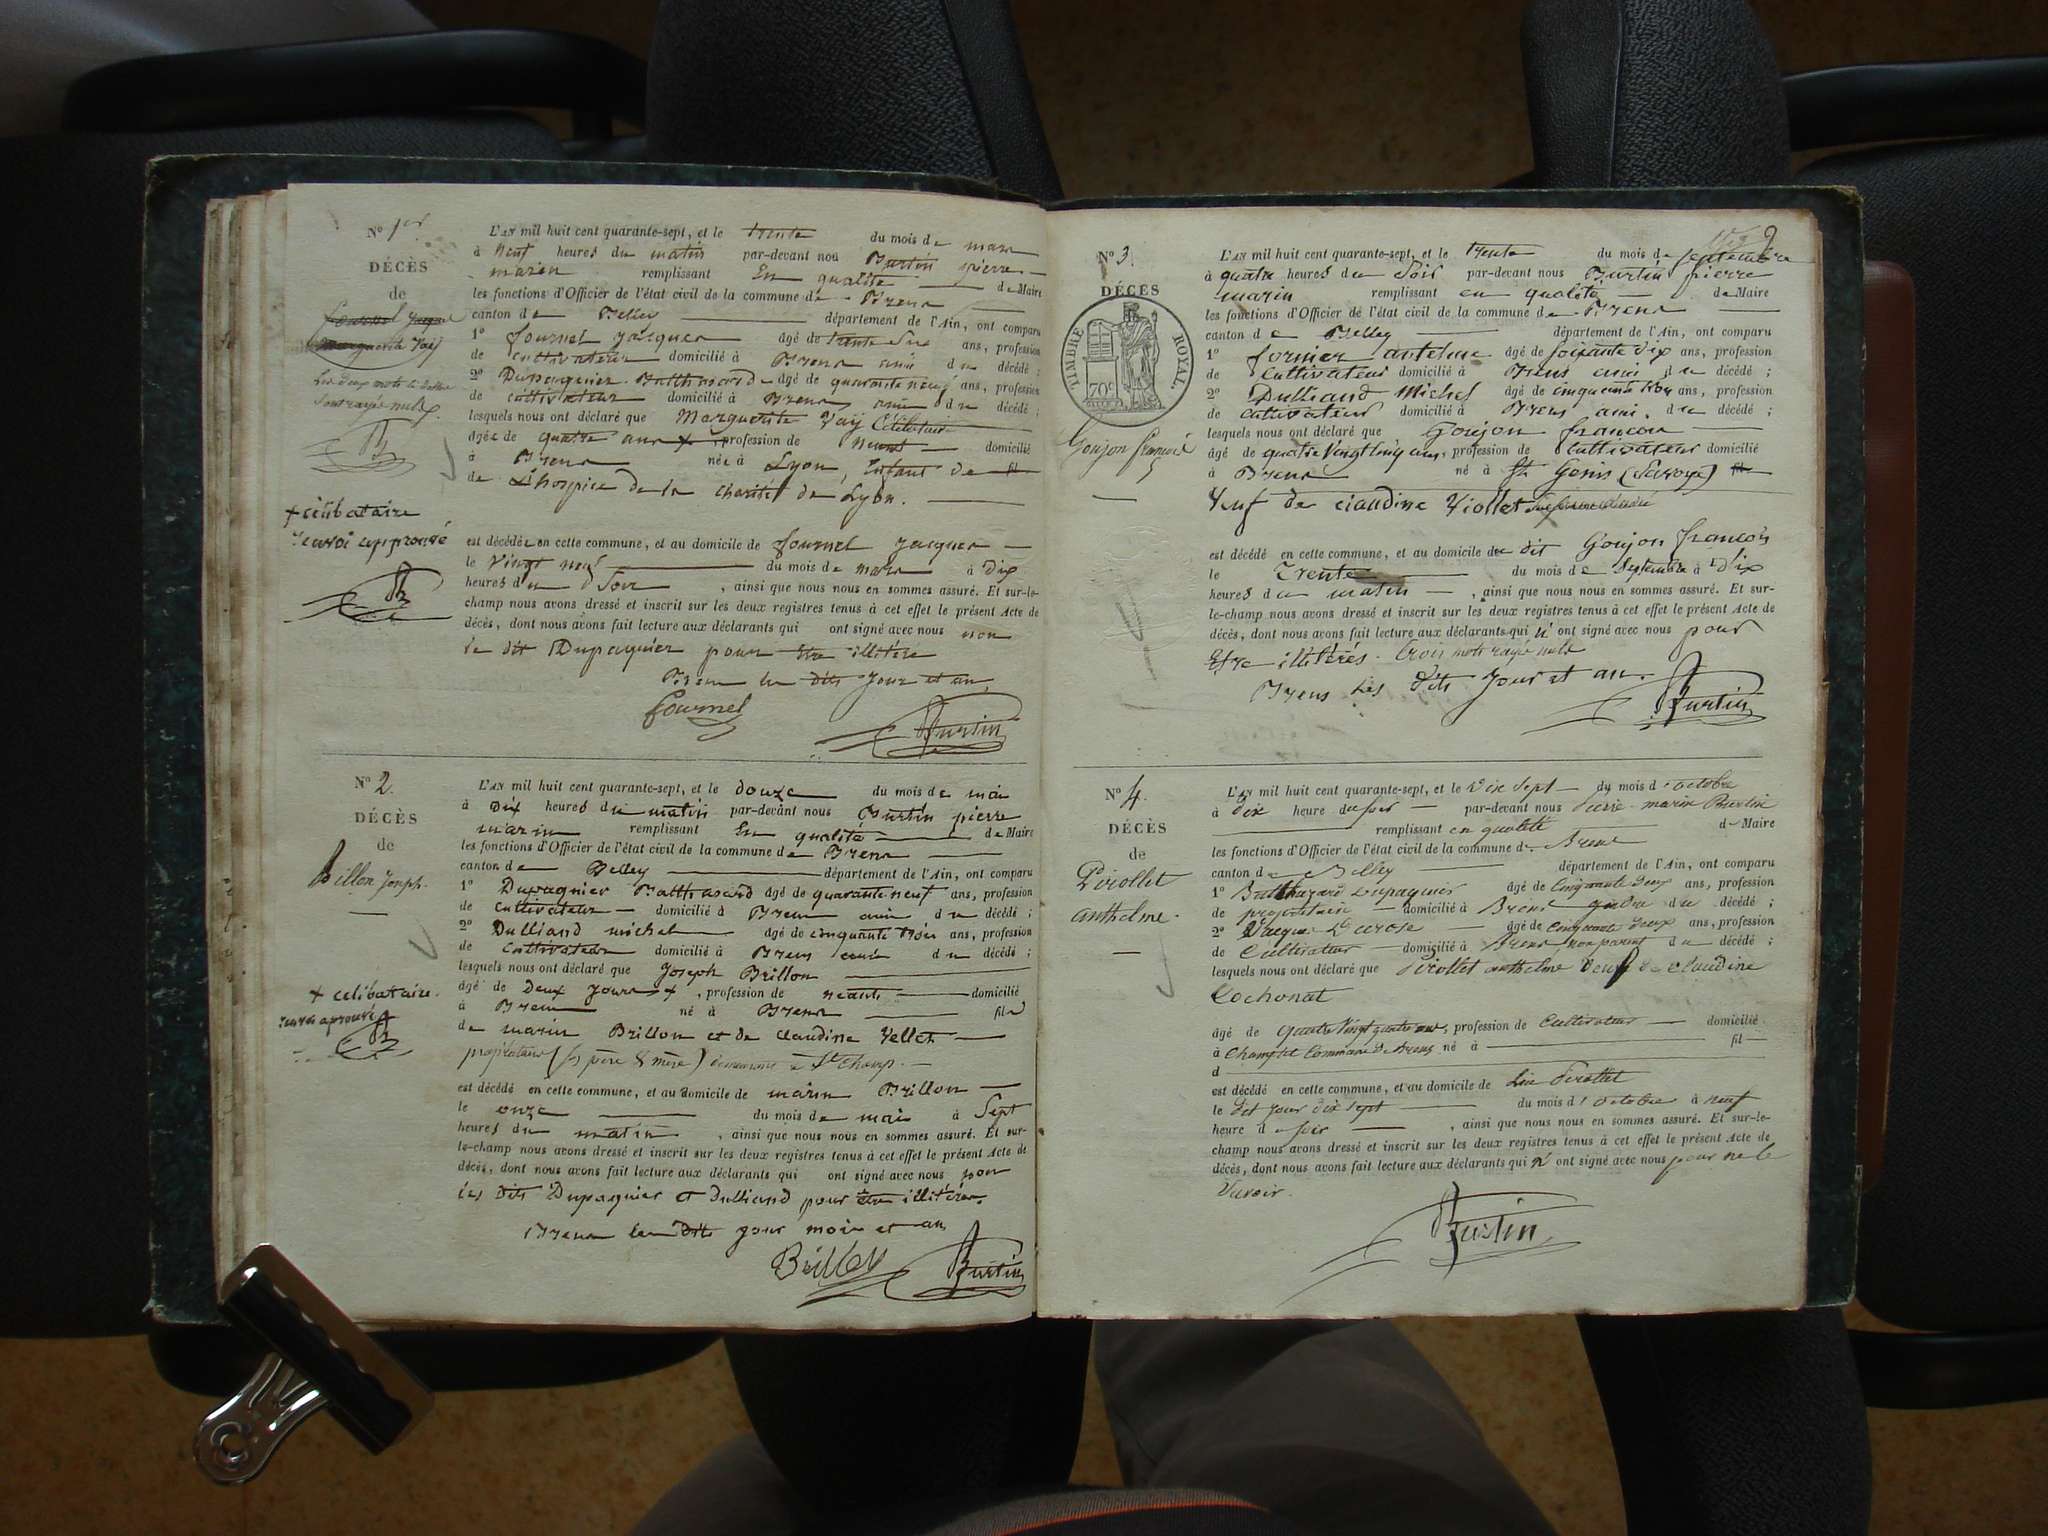 No 1er
DÉCÈS
de
fournel Jaque
Marguerite Vaÿ
Les deux mots
sont rayés nuls
+ célibataire
renvoi approuvé
L'AN mil huit cent quarante-sept, et le trente du mois de mars
à neuf heures du matin par-devant nou Burtin pierre
marin remplissant En qualité de Maire
les fonctions d'Officier de l'état civil de la commune de Brens
canton de Belley département de l'Ain, ont comparu
1o fournel Jacques âgé de trente six ans, profession
de cultivateur domicilié à Brens ami du décédé ;
2o Dupaquier Balthasard âgé de quarante neuf ans, profession
de cultivateur domicilié à Brens ami du décédé ;
lesquels nous ont déclaré que Marguerite Vaÿ Célibataire
âgée de quatre ans + profession de domicilié
à Brens née à Lyon, Enfant de fil
de L'hospice de la charité de Lyon.
est décédée en cette commune, et au domicile de fournel Jacques
le Vingt neuf du mois de mars à dix
heures du Soir , ainsi que nous nous en sommes assuré. Et sur-le-
champ nous avons dressé et inscrit sur les deux registres tenus à cet effet le présent Acte de
décès, dont nous avons fait lecture aux déclarants qui ont signé avec nous non
le dit Dupaquier pour Etre illitéré
Brens les dits Jour et an,
fournel Burtin
No 2.
DÉCÈS
de
Billon Joseph.
+ celibataire.
renvoi aprouvé
L'AN mil huit cent quarante-sept, et le douze du mois de mai
à dix heures du matin par-devant nous Burtin pierre
marin remplissant En qualité de Maire
les fonctions d'Officier de l'état civil de la commune de Brens
canton de Belley département de l'Ain, ont comparu
1o Dupaquier Balthasard âgé de quarante neuf ans, profession
de cultivateur domicilié à Brens ami du décédé ;
2o Dulliand michel âgé de cinquante trois ans, profession
de cultivateur domicilié à Brens ami du décédé ;
lesquels nous ont déclaré que Joseph Brillon
âgé de deux jours + , profession de neant domicilié
à Brens né à Brens fils
de marin Brillon et de claudine Vellet
(ses père & mère) demeurant à St Champ.
est décédé en cette commune, et au domicile de marin Brillon
le onze du mois de mai à Sept
heures du matin , ainsi que nous nous en sommes assuré. Et sur-
le-champ nous avons dressé et inscrit sur les deux registres tenus à cet effet le présent Acte de
décès, dont nous avons fait lecture aux déclarants qui ont signé avec nous non
les dits Dupaquier et Dulliand pour être illitérés
Brens les dits jour mois et an
Burtin
2
No 3.
DÉCÈS
TIMBRE ROYAL.
70c
Goujon françois
L'AN mil huit cent quarante-sept, et le trente du mois de septembre
à quatre heures du Soir par-devant nous Burtin pierre
marin remplissant en qualité de Maire
les fonctions d'Officier de l'état civil de la commune de Brens
canton de Belley département de l'Ain, ont comparu
1o fornier antelme âgé de soixante dix ans, profession
de cultivateur domicilié à Brens ami du décédé ;
2o Dulliand Michel âgé de cinquante trois ans, profession
de cultivateur domicilié à Brens ami du décédé ;
lesquels nous ont déclaré que Goujon francois
âgé de quatre Vingt cinq ans, profession de cultivateur domicilié
à Brens né à St Genis (Savoye) fils
Veuf de claudine Viollet
est décédé en cette commune, et au domicile du dit Goujon françois
le Trente du mois de Septembre à dix
heures du matin , ainsi que nous nous en sommes assuré. Et sur-
le-champ nous avons dressé et inscrit sur les deux registres tenus à cet effet le présent Acte de
décès, dont nous avons fait lecture aux déclarants qui n' ont signé avec nous pour
Etre illitérés. trois mots rayés nuls
Brens Les dits Jour et an.
Burtin
No 4.
DÉCÈS
de
Pirollet
anthelme.
L'AN mil huit cent quarante-sept, et le dix sept du mois d'octobre
à dix heure du soir par-devant nous pierre marin Burtin
remplissant en qualité de Maire
les fonctions d'Officier de l'état civil de la commune de Brens
canton de Belley département de l'Ain, ont comparu
1o Balthazard Dupaquier âgé de cinquante deux ans, profession
de propriétaire domicilié à Brens gendre du décédé ;
2o Jacques Larose âgé de cinquante deux ans, profession
de Cultivateur domicilié à Brens non parent du décédé ;
lesquels nous ont déclaré que Pirollet anthelme veuf de claudine
Cochonat
âgé de quatre Vingt quatre ans, profession de Cultivateur domicilié
à commune de Brens né à fil
d
est décédé en cette commune, et au domicile de Pirollet
le dit jour dix sept du mois d'octobre à neuf
heure du soir , ainsi que nous nous en sommes assuré. Et sur-le-
champ nous avons dressé et inscrit sur les deux registres tenus à cet effet le présent Acte de
décès, dont nous avons fait lecture aux déclarants qui n' ont signé avec nous pour ne le
savoir.
Burtin